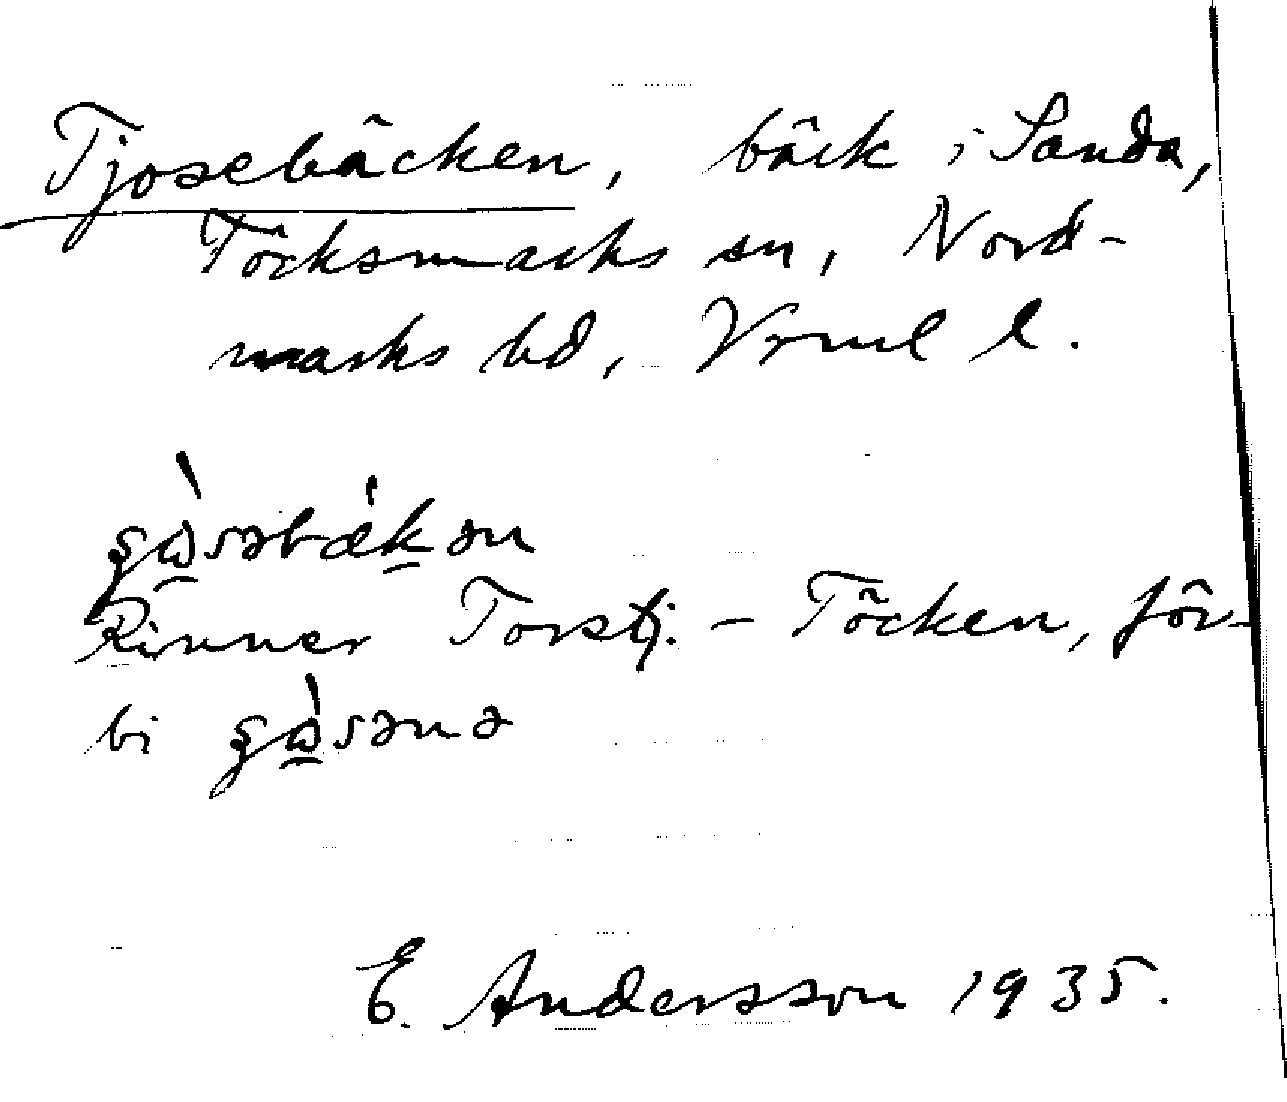 Tjosebäcken, bäck i Sanda,
Töcksmarks sn, Nord-
marks hd, Vrml l.
Rinner Torstj. - Töcken, för-
bi
E. Andersson 1935.